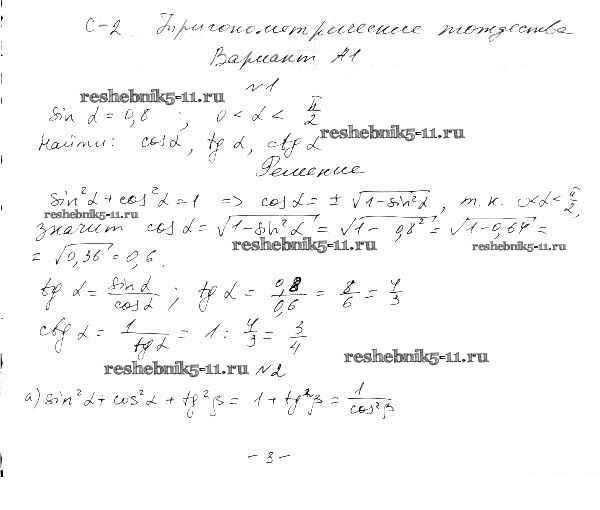 С-2 Тригонометрические тождества
Вариант А1
№1
reshebnik5-11.ru
sin α = 0,8 ; 0 < α < π/2
reshebnik5-11.ru
Найти: cos α, tg α, ctg α
Решение
sin²α + cos²α = 1 => cos α = ± √(1-sin²α), т.к. 0<α<π/2,
reshebnik5-11.ru
значит cos α = √(1-sin²α) = √(1-0,8²) = √(1-0,64) =
reshebnik5-11.ru reshebnik5-11.ru
= √0,36 = 0,6.
tg α = sin α/cos α ; tg α = 0,8/0,6 = 8/6 = 4/3
ctg α = 1/tg α = 1 : 4/3 = 3/4
reshebnik5-11.ru
reshebnik5-11.ru №2
а) sin²α + cos²α + tg²β = 1 + tg²β = 1/cos²β
- 3 -